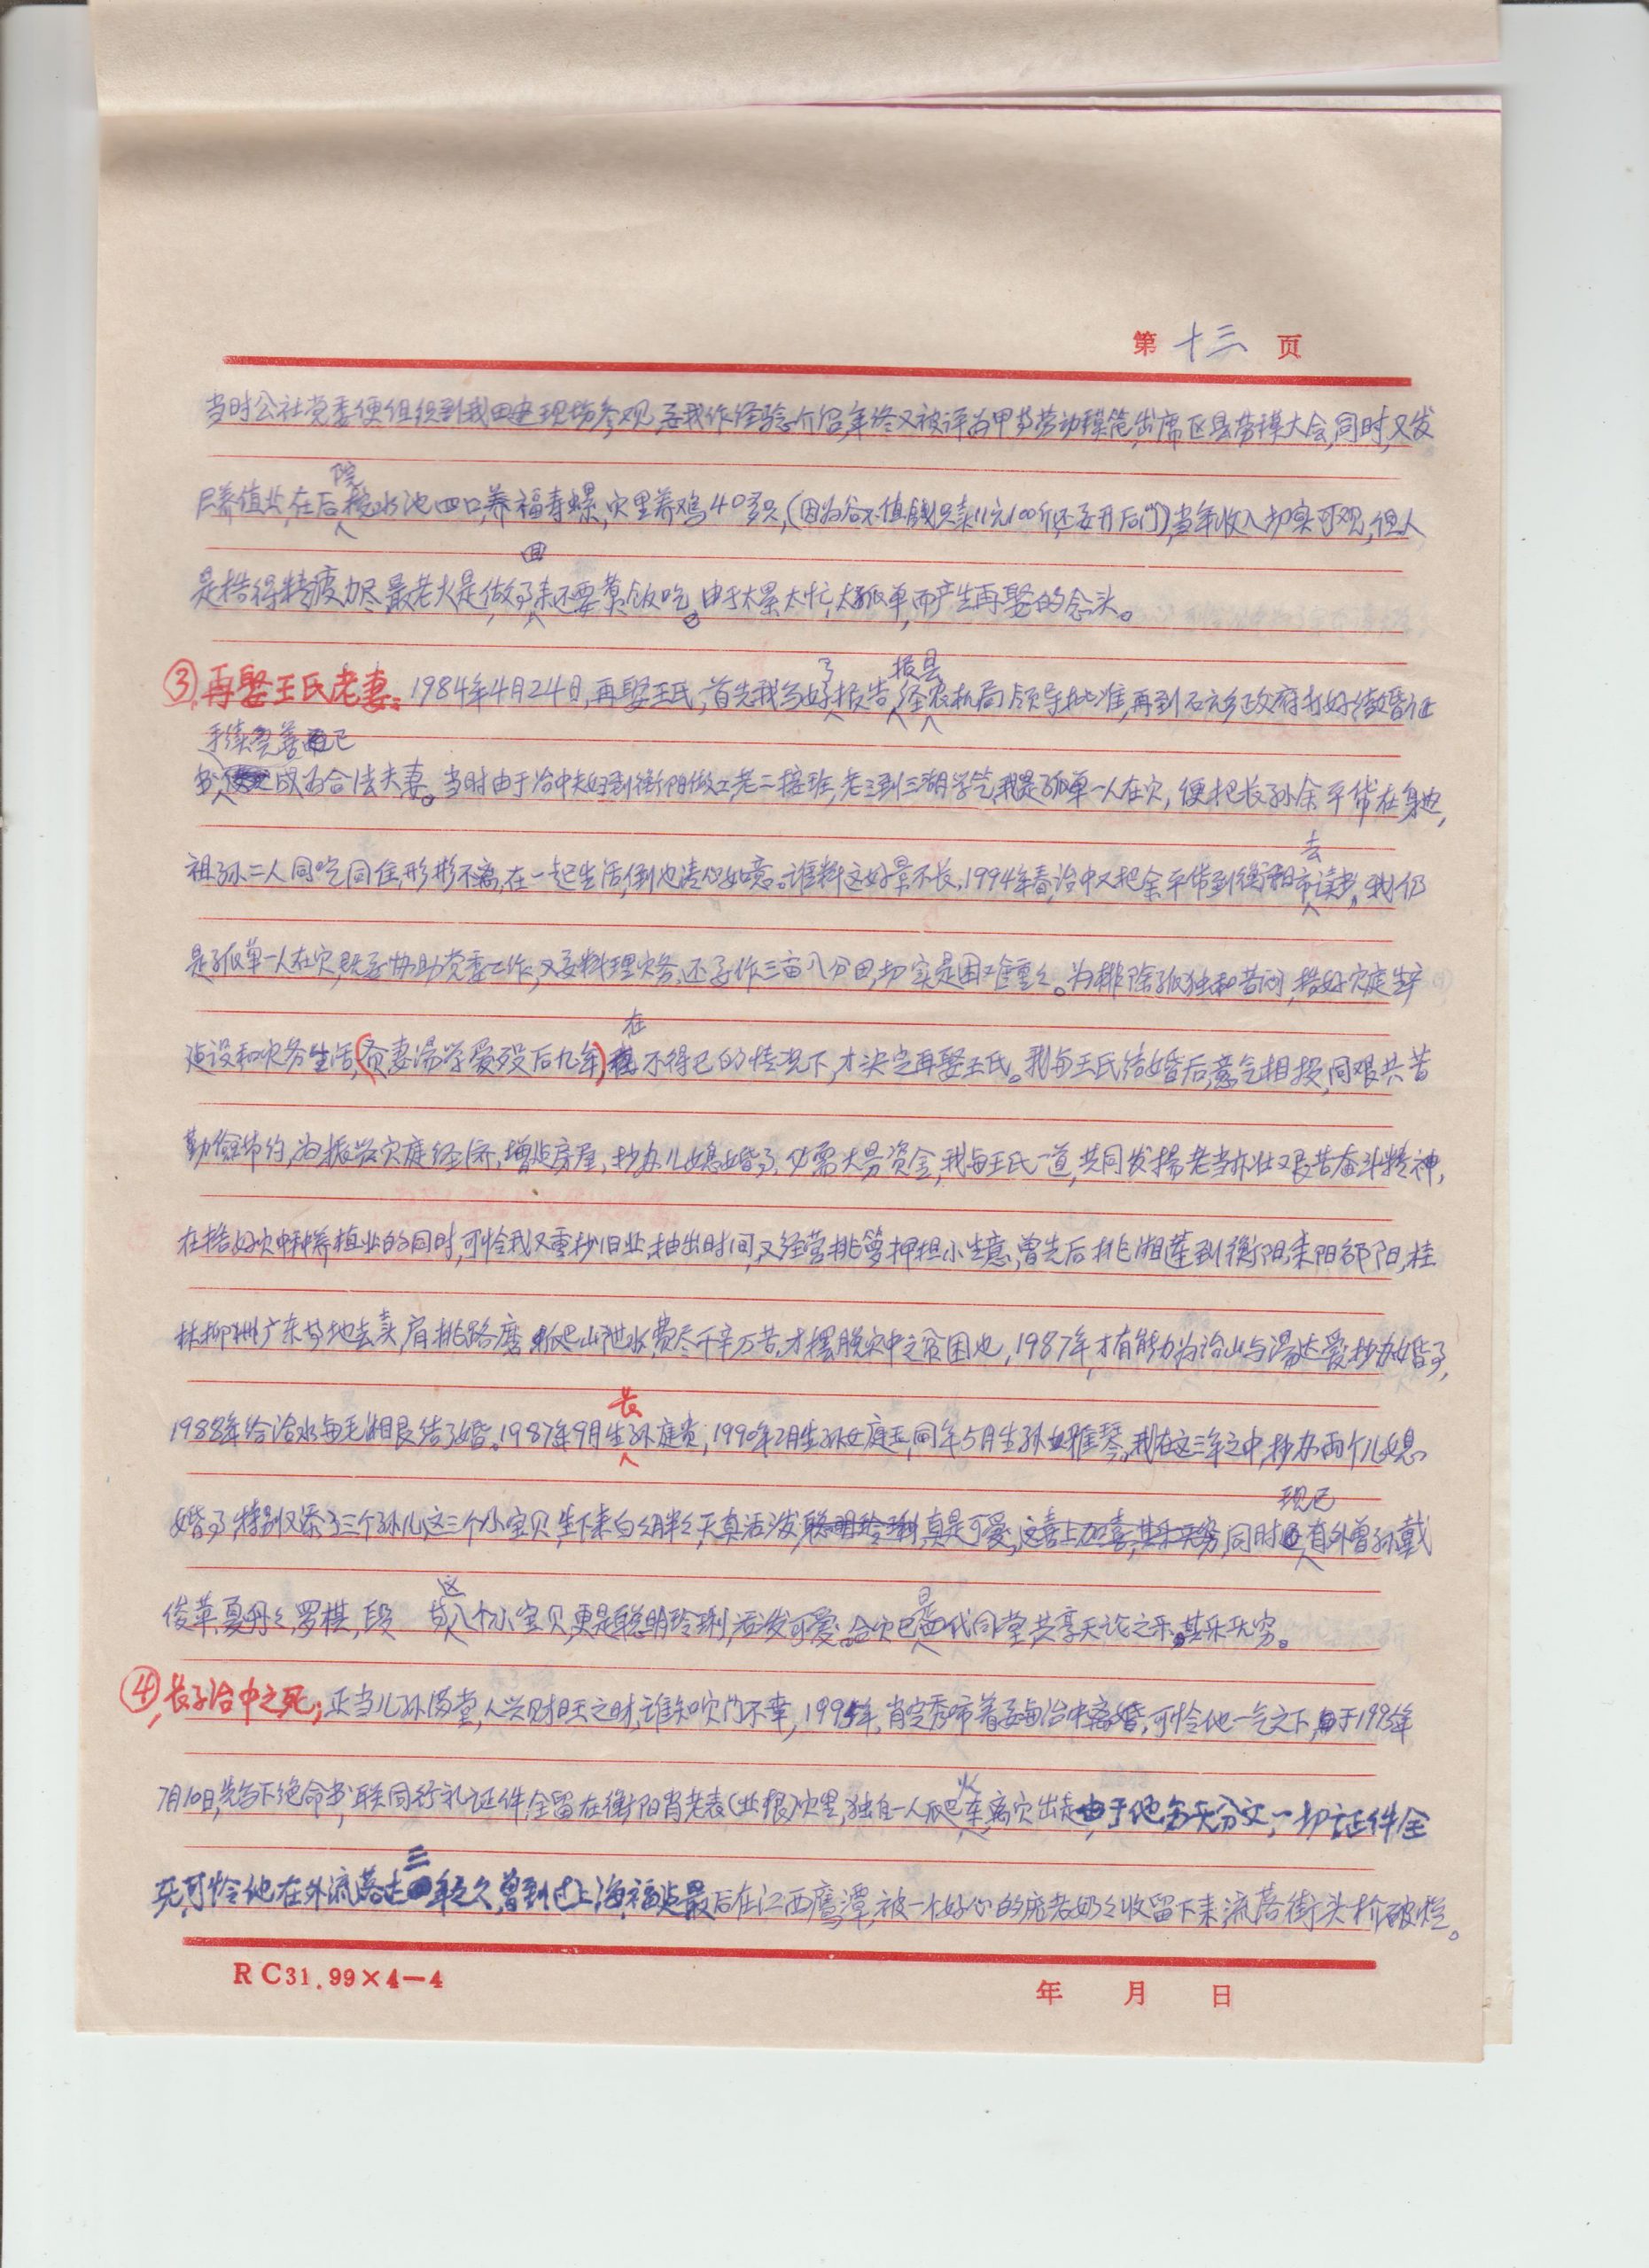 第十三页
当时公社党委便组织到我田边现场参观,要我作经验介绍,年终又被评为甲等劳动模范,出席区县劳模大会,同时,又发
尸养值业,在后院挖水池四口,养福寿螺,穴里养鸡40多只,(因为谷不值钱只卖11元100斤还要开后门)当年收入切实可观,但人
是搞得精疲力尽,最老火是做了回来还要煮饭吃。由于太累太忙,太孤单,而产生再娶的念头。
③再娶王氏老妻:1984年4月24日,再娶王氏,首先我写好了报告,经报县农机局领导批准,再到石方乡政府打好结婚证
书,手续完善已成为合法夫妻。当时由于治中夫妇到衡阳做工,老二接班,老三到三湖学艺,我是孤单一人在穴,便把长孙余平带在身边,
祖孙二人同吃同住,形影不离,在一起生活,倒也清心如意。谁料这好景不长,1994年春,治中又把余平带到衡阳市去读书,我仍
是孤单一人在穴,既要协助党委工作,又要料理穴务,还要作三亩八分田,切实是困难重重。为排除孤独和苦闷,搞好穴庭
建设和穴务生活,(贫妻汤学爱殁后九年)在不得已的情况下,才决定再娶王氏。我与王氏结婚后,意气相投,同艰共苦
勤俭节约,为振兴穴庭经济,增造房屋,抄办儿媳婚事,必需大量资金,我与王氏一道,共同发扬老当亦壮艰苦奋斗精神,
在搞好穴中种养植业的同时,可怜我又重抄旧业,抽出时间,又经营挑箩押担小生意,曾先后挑湘莲到衡阳,耒阳邵阳,桂
林柳州广东等地去卖,肩挑路磨,爬山泄水,费尽千辛万苦,才摆脱穴中之贫困也,1987年,才有能力为治山与汤达爱抄办婚事,
1988年给治水与毛湘良结了婚。1987年9月生长孙庭贵,1990年2月生孙女庭玉,同年5月生孙女雅琴,我在这三年之中,抄办两个儿媳
婚事,特别又添了三个孙儿,这三个小宝贝,生下来白白胖胖天真活泼,聪明玲琍,真是可爱,这喜上加喜,其乐无穷,同时现已有外曾孙戴
俊苹,夏丹丹,罗棋,段 这八个小宝贝,更是聪明玲琍,活泼可爱。合穴已是四代同堂共享天论之乐,其乐无穷。
④长子治中之死;正当儿孙满堂,人兴财旺之时,谁知穴门不幸,1995年,肖定秀啼着要与治中离婚,可怜他一气之下,由于1995年
7月10日,先写下绝命书,联同行礼证件,全留在衡阳肖老表(业根)穴里,独自一人爬火车,离穴出走,由于他身无分文,一切证件全
无,可怜他在外流落达三年之久,曾到过上海福建最后在江西鹰潭,被一个好心的庞老奶奶收留下来流落街头,捡破烂。
RC31.99×4—4
年 月 日